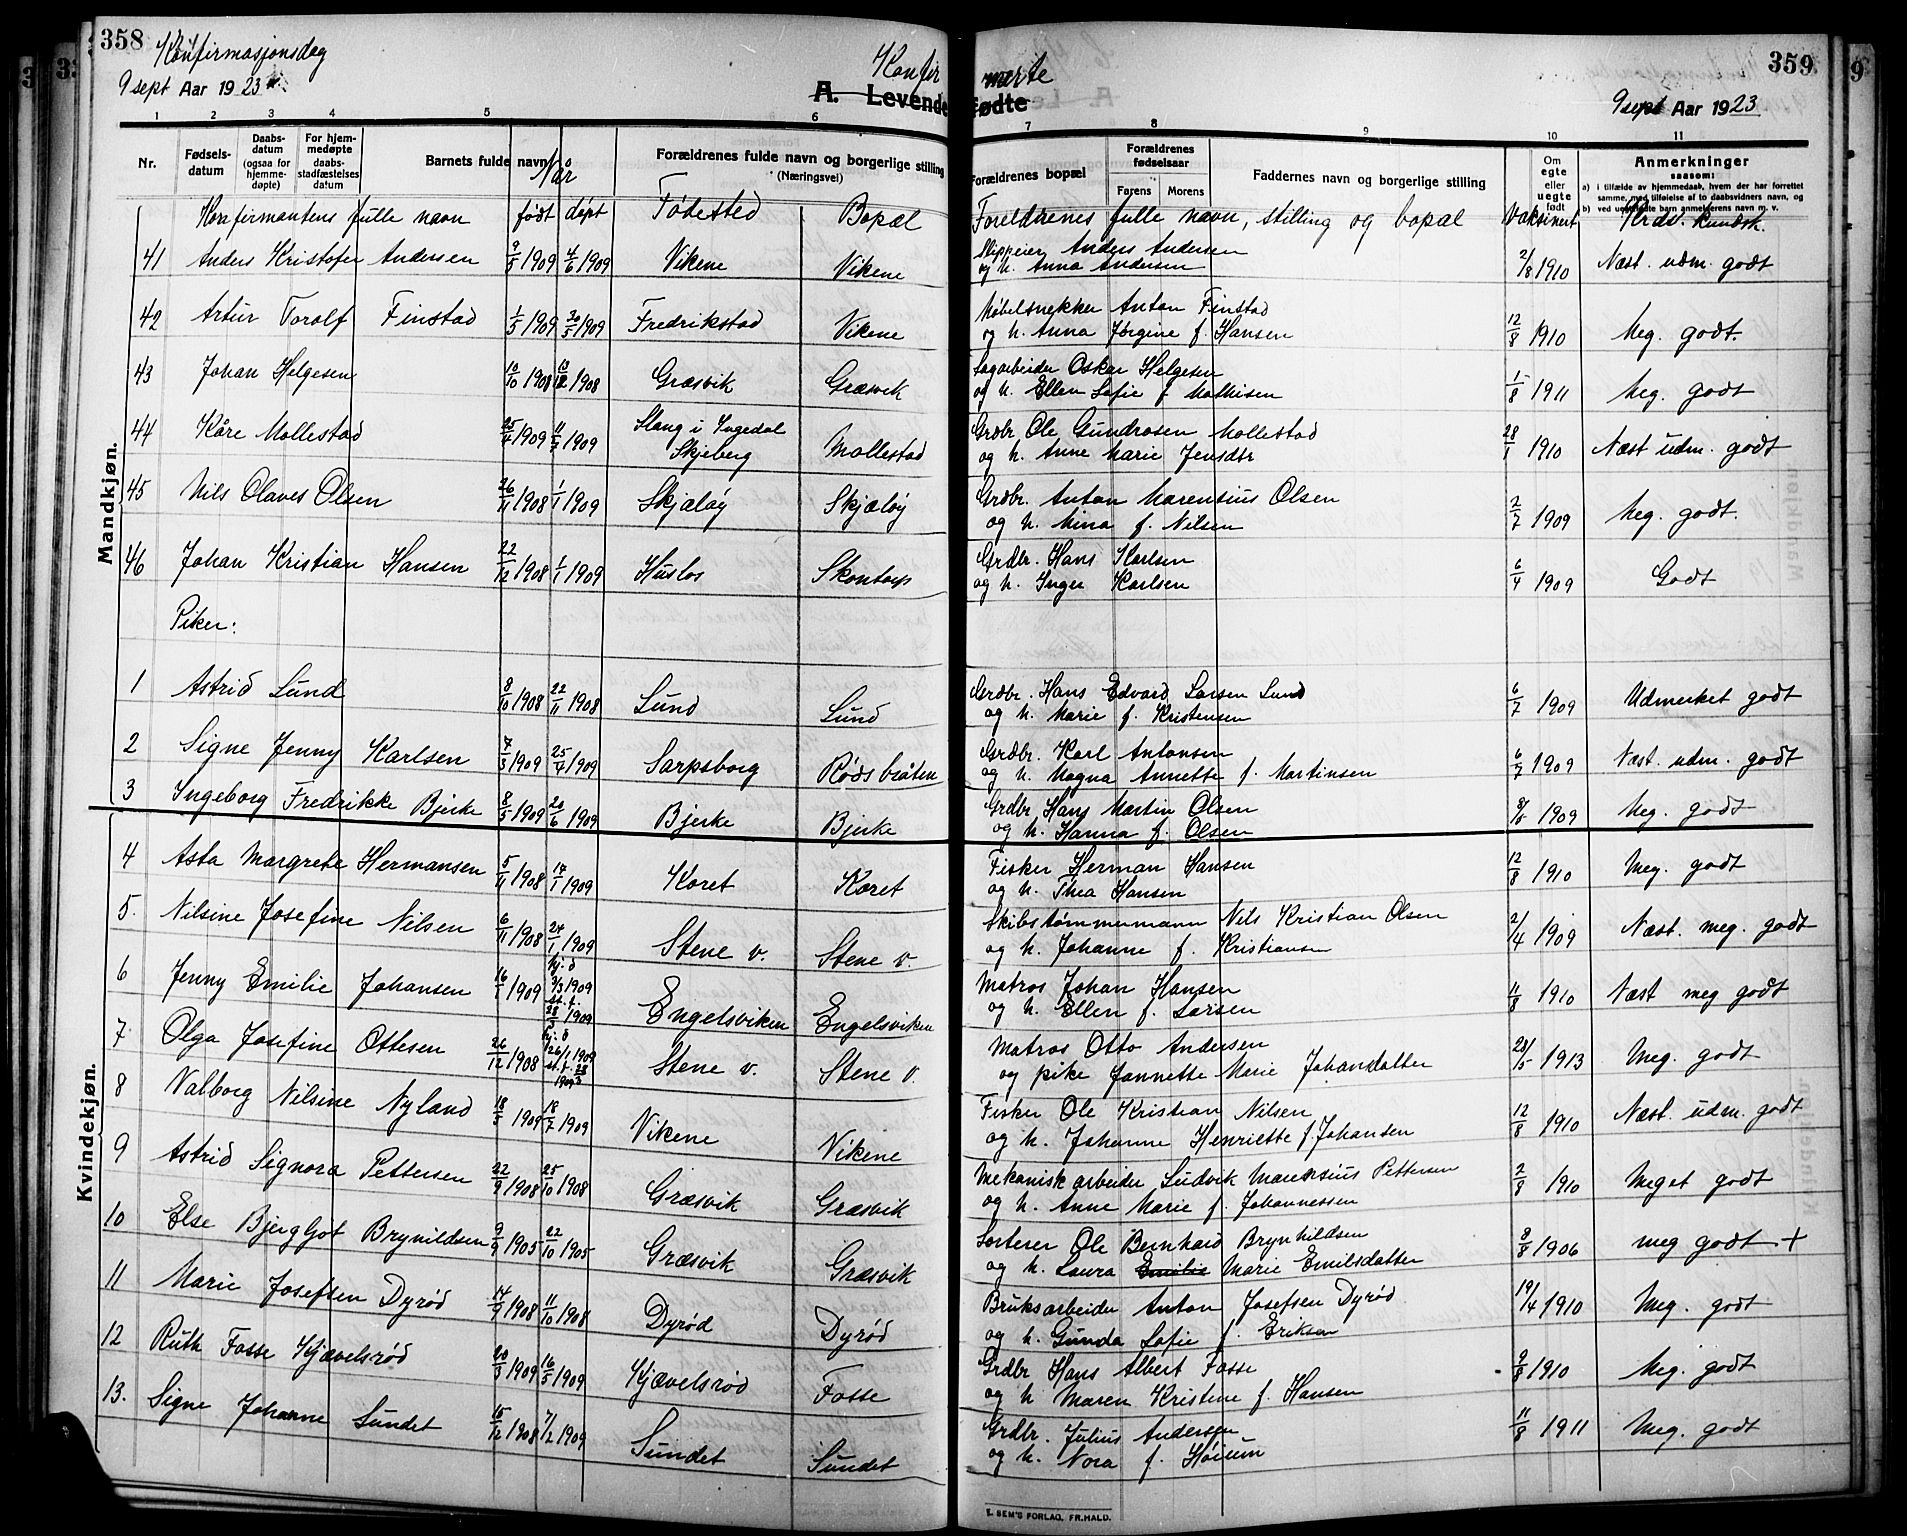 358
Konfirmasjonsdag
9 sept Aar 1923
Konfir
A. Levende
1 2 3 4 5 6
Nr. Fødsels-datum Daabs-datum (ogsaa for hjemme-døpte) For hjem-medøpte daabs-stadfæstelses datum Barnets fulde navn Når Forældrenes fulde navn og borgerlige stilling (Næringsvei)
Konfirmantens fulle navn født døpt Fødested Bopæl
Mandkjøn.
41 Anders Kristofer Andersen 9/5 1909 4/6 1909 Vikene Vikene
42 Artur Toralf Finstad 1/5 1909 30/5 1909 Fredrikstad Vikene
43 Johan Helgesen 10/10 1908 1908 Græsvik Græsvik
44 Kåre Mollestad 25/4 1909 11/7 1909 Slang i Ingedal Skjeberg Mollestad
45 Nils Olaves Olsen 26/11 1908 1/1 1909 Skjæløy Skjæløy
46 Johan Kristian Hansen 22/12 1908 1/1 1909 Huslos Skontorp
Piker:
1 Astrid Lund 8/10 1908 22/11 1908 Lund Lund
2 Signe Jenny Karlsen 7/3 1909 25/4 1909 Sarpsborg Rødsbråten
3 Ingeborg Fredrikke Bjerke 8/5 1909 20/6 1909 Bjerke Bjerke
Kvindekjøn.
4 Asta Margrete Hermansen 5/11 1908 17/1 1909 Koret Koret
5. Nilsine Josefine Nilsen 6/11 1908 24/1 1909 Stene v. Stene v.
6 Jenny Emilie Johansen 16/1 1909 hj. d 3/3 1909 st. f. 28/3 1909 Engelsviken Engelsviken
7 Olga Josefine Ottesen 26/12 1908 hj. d 26/1 1909 st. f. 28/3 1909 Stene v. Stene v.
8 Valborg Nilsine Nyland 18/5 1909 18/7 1909 Vikene Vikene
9 Astrid Signora Pettersen 22/9 1908 25/10 1908 Græsvik Græsvik
10 Else Bjergljot Brynildsen 9/9 1905 22/10 1905 Græsvik Græsvik
11 Marie Josefsen Dyrød 14/9 1908 11/10 1908 Dyrød Dyrød
12 Ruth Fosse Kjævelsrød 20/3 1909 16/5 1909 Kjævelsrød Fosse
13. Signe Johanne Sundet 15/12 1908 7/2 1909 Sundet Sundet
359
merte
Fødte
9 sept Aar 1923
7 8 9 10 11
Forældrenes bopæl Forældrenes fødselsaar Farens Morens Faddernes navn og borgerlige stilling Om egte eller uegte født Anmerkninger saasom: a) i tilfælde av hjemmedaab, hvem der har forrettet samme, med tilføielse af to daabsvidners navn, og b) ved uegtefødte barn anmelderens navn m. v.
Foreldrenes fulle navn, stilling og bopæl Vaksinert Krds. kundsk.
Skippeier Anders Andersen
og h. Anna Andersen 2/8 1910 Næst. udm. godt
Møbelsnekker Anton Finstad
og h. Anna Jørgine f. Hansen 12/8 1910 Meg. godt.
Sagarbeider Oskar Helgesen
og h. Ellen Sofie f. Mathisen 1/8 1911 Meg. godt
Grdbr. Ole Gundrosen Mollestad
og h. Anne Marie Jensdtr 28/1 1910 Næst udm. godt
Grdbr. Anton Marensius Olsen
og h. Mina f. Nilsen 2/7 1909 Meg. godt.
Grdbr. Hans Karlsen
og h. Inger Karlsen 6/4 1909 Godt
Grdbr. Hans Edvard Larsen Lund
og h. Marie f. Kristensen 6/7 1909 Udmerket godt
Grdbr. Karl Antonsen
og h. Magna Annette f. Martinsen 6/7 1909 Næst. udm. godt
Grdbr Hans Martin Olsen
og h. Hanna f. Olsen 1909 Meg. godt
Fisker Herman Hansen
og h. Thea Hansen 12/8 1910 Meg. godt
Skibstømmermann Nils Kristian Olsen
og h. Johanne f. Kristiansen 2/4 1909 Næst. meg. godt
Matros Johan Hansen
og h. Ellen f. Larsen 11/8 1910 Næst meg godt
Matros Otto Andersen
og pike Jannette Marie Johansdatter 28/5 1913 Meg. godt
Fisker Ole Kristian Nilsen
og h. Johanne Henriette f. Johansen 12/8 1910 Næst. udm. godt
Mekanisk arbeider Ludvik Marensius Pettersen
og h. Anne Marie f. Johannessen 2/8 1910 Meget godt
Sorterer Ole Bernhard Brynhildsen
og h. Laura Emilie Marie Emilsdatter 8/8 1906 meg godt +
Bruksarbeider Anton Josefsen Dyrød
og h. Gunda Sofie f. Eriksen 19/4 1910 Meg. godt
Grdbr Hans Albert Fosse
og h Maren Kristine f. Hansen 9/8 1910 Meg. godt
Grdbr. Julius Andersen
og h. Nora f. Høium 11/8 1911 Meg. godt
E. SEM'S FORLAG, FR.HALD.